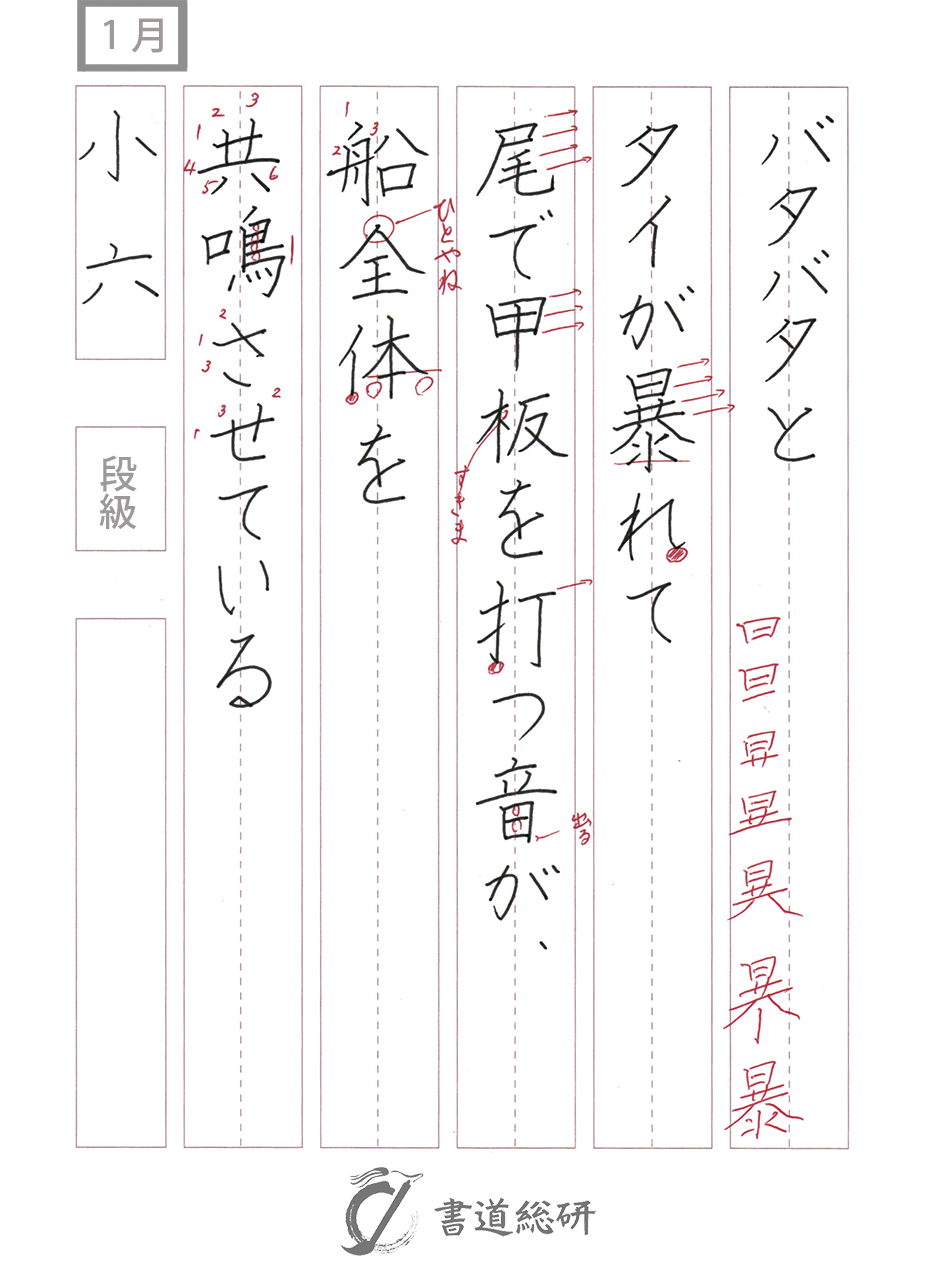 1月
バタバタと
タイが暴れて
尾で甲板を打つ音が、
船全体を
共鳴させている
小六
段級
1
2
3
4
5
6
1
1
2
3
1
2
3
1
2
3
ひとやね
すきま
出る
暴
書道総研